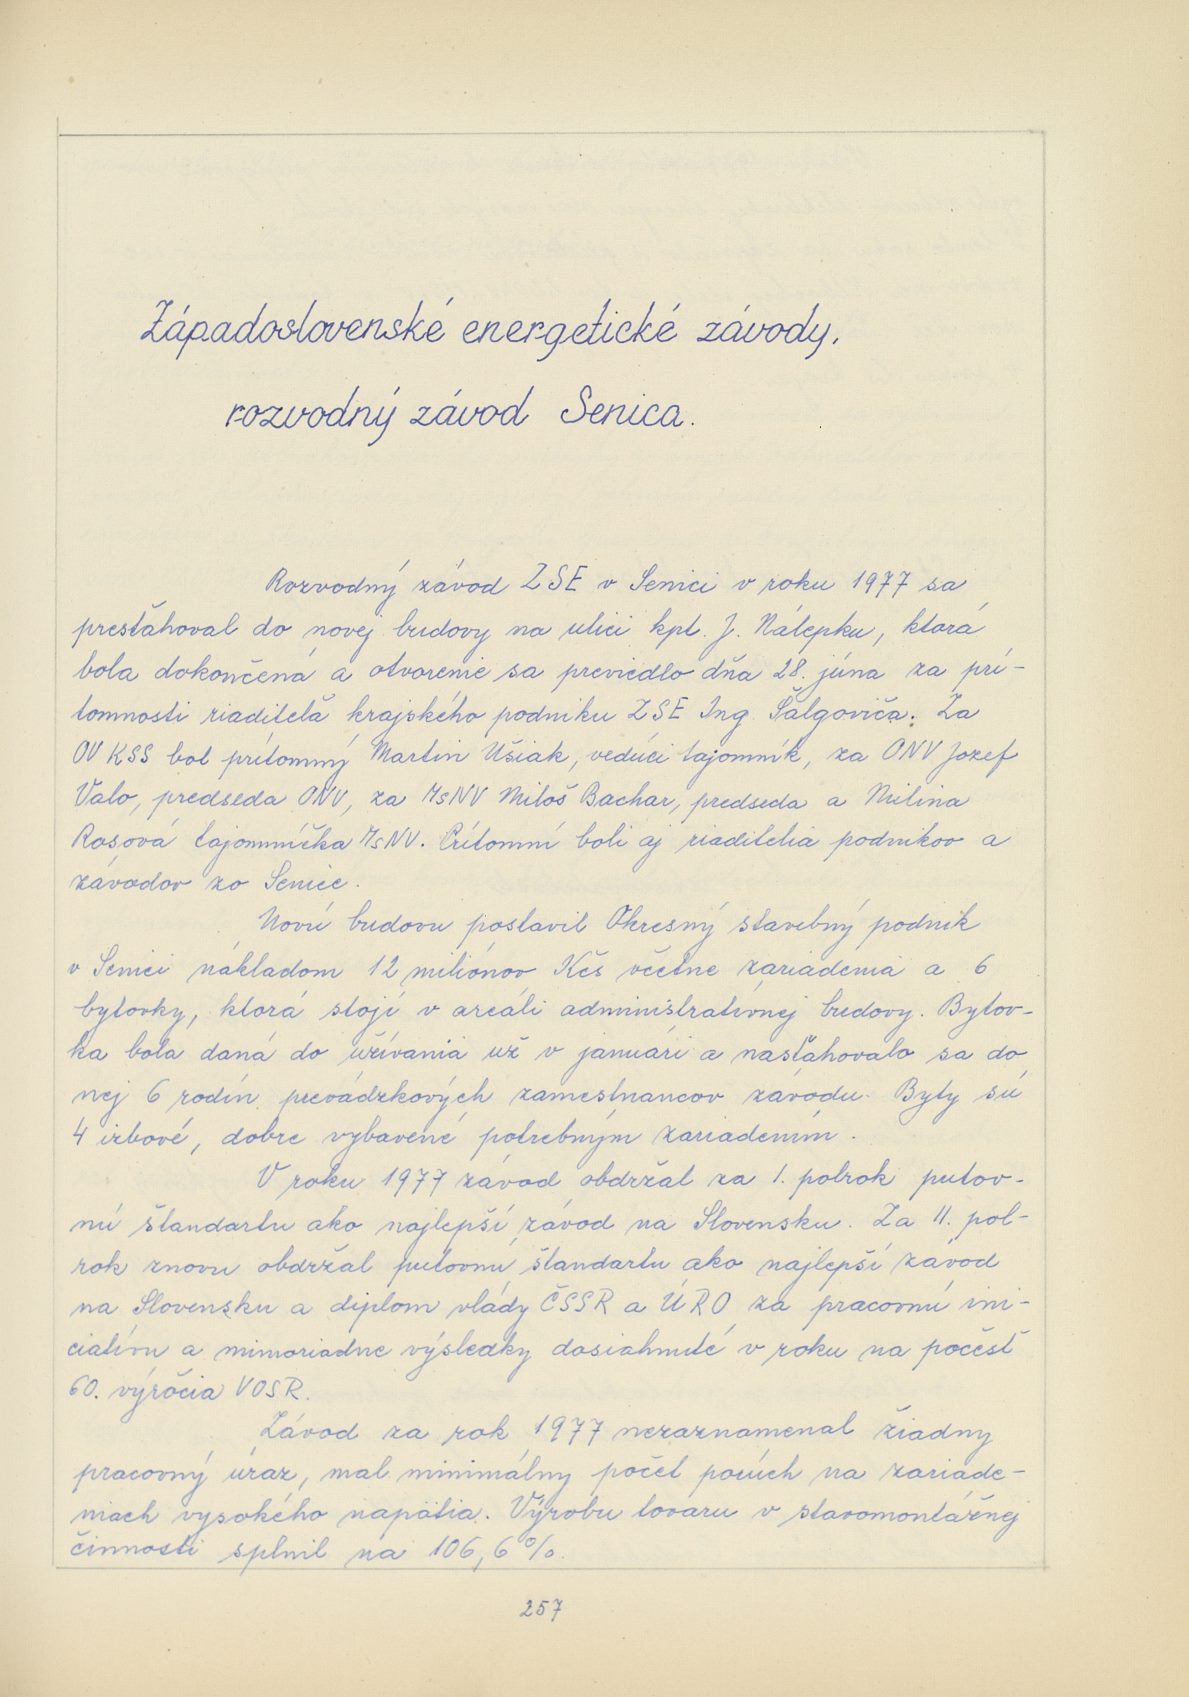 Západoslovenské energetické závody,
rozvodný závod Senica.
Rozvodný závod ZSE v Senici v roku 1977 sa
presťahoval do novej budovy na ulici kpt. J. Nálepku, ktorá
bola dokončená a otvorenie sa previedlo dňa 28. júna za prí-
tomnosti riaditeľa krajského podniku ZSE Ing. Šalgoviča. Za
OV KSS bol prítomný Martin Ušiak, vedúci tajomník, za ONV Jozef
Valo, predseda ONV, za MsNV Miloš Bachar, predseda a Milina
Rosová tajomníčka MsNV. Prítomní boli aj riaditelia podnikov a
závodov zo Senice.
Novú budovu postavil Okresný stavebný podnik
v Senici nákladom 12 miliónov Kčs včetne zariadenia a 6
bytovky, ktorá stojí v areáli administratívnej budovy. Bytov-
ka bola daná do užívania už v januári a nasťahovalo sa do
nej 6 rodín prevádzkových zamestnancov závodu. Byty sú
4 izbové, dobre vybavené potrebným zariadením.
V roku 1977 závod obdržal za 1. polrok putov-
nú štandartu ako najlepší závod na Slovensku. Za II. pol-
rok znovu obdržal putovnú štandartu ako najlepší závod
na Slovensku a diplom vlády ČSSR a ÚRO za pracovnú ini-
ciatívu a mimoriadne výsledky dosiahnuté v roku na počesť
60. výročia VOSR.
Závod za rok 1977 nezaznamenal žiadny
pracovný úraz, mal minimálny počet porúch na zariade-
niach vysokého napätia. Výrobu tovaru v stavomontážnej
činnosti splnil na 106,6 %.
257